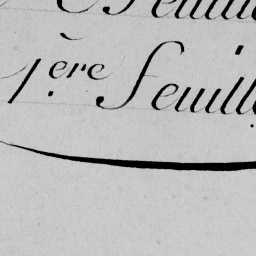 Feuille
1ère Feuille